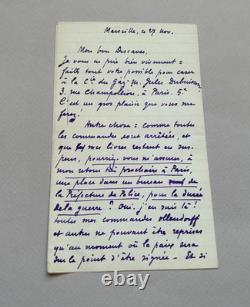 Marseille, ce 27 Nov.
Mon bon Descaves,
Je vous en prie bien vivement :
faites tout votre possible pour caser
à la Cie du Gaz M. Jules
3, rue Champollion, à Paris, 5e.
C'est un gros plaisir que vous me
ferez !
Autre chose : comme toutes
les commandes sont arrêtées et
que mes livres restent en sus-
pens, pourriez-vous m'assurer, à
mon retour prochain à Paris,
une place dans un bureau de
la Préfecture de Police, pour la durée
de la guerre ? Oui, j'en suis là !
toutes mes commandes Ollendorff
et autres ne pouvant être reprises
qu'au moment où la paix sera
sur le point d'être signée. Et si
© 123h